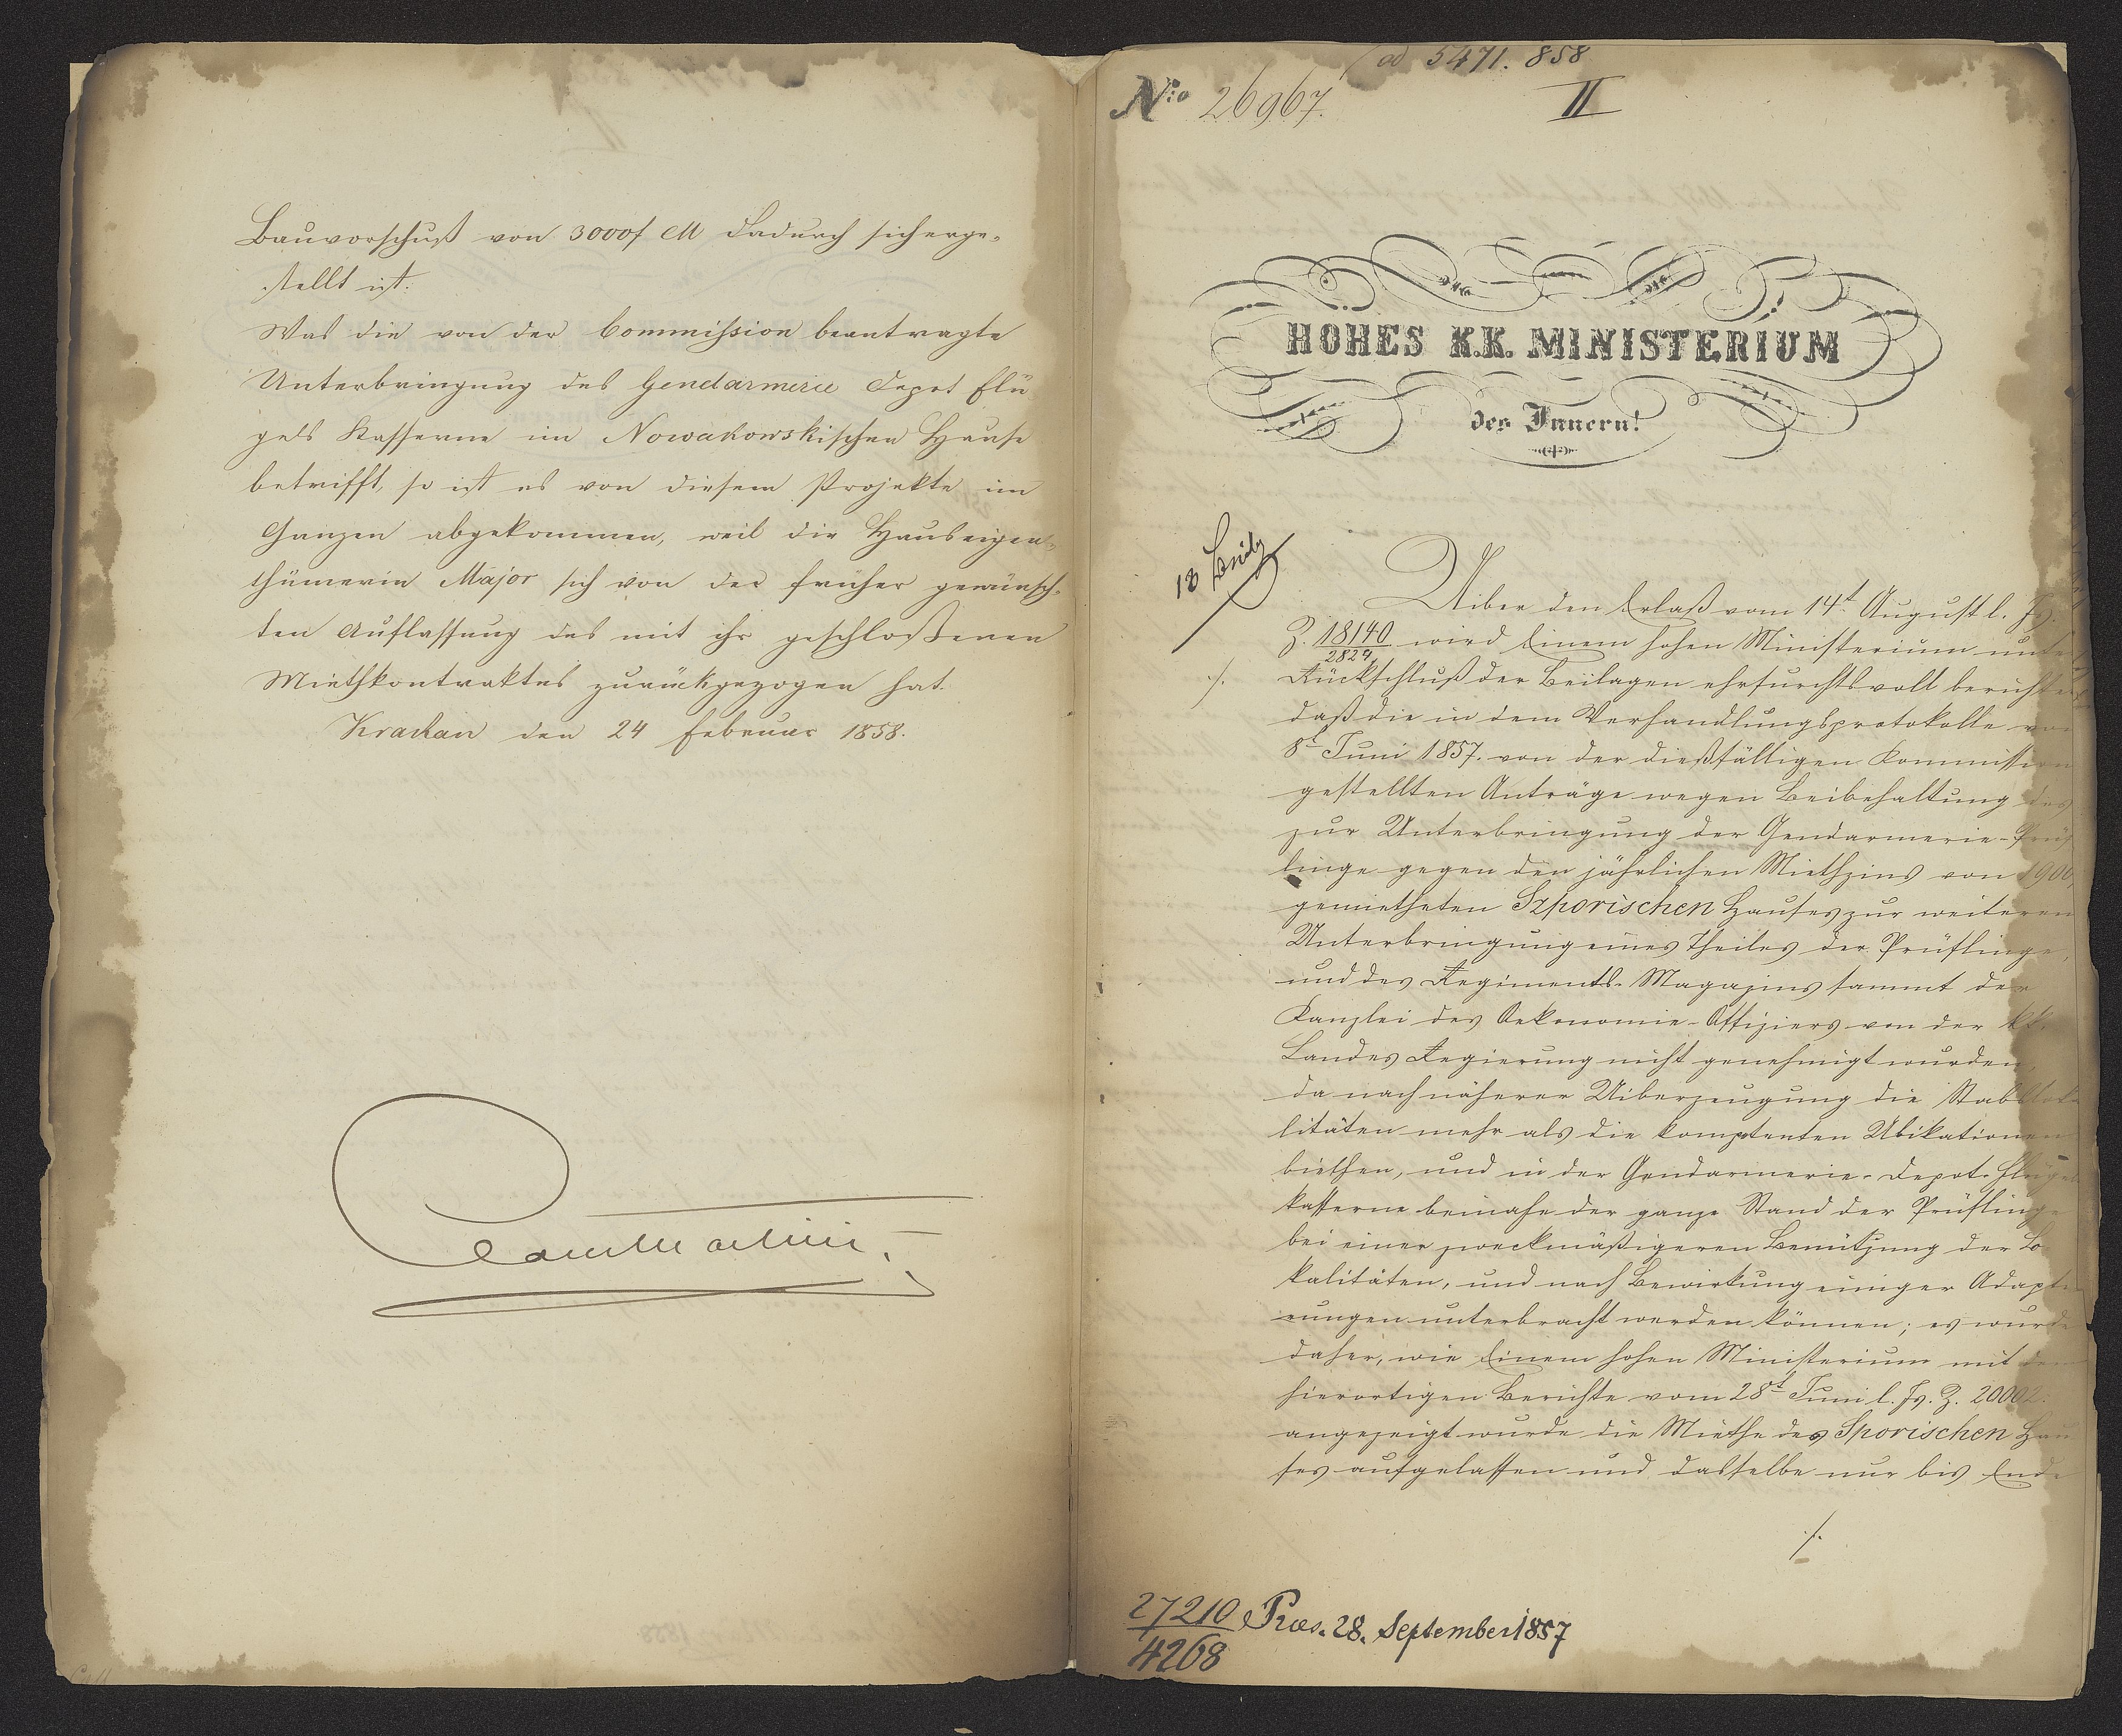 Bauvorschuß von 3000f CM dadurch sicherge-
stellt ist.
Was die von der Commission beantragte
Unterbringung des Gendarmerie Depot Flü
gels Kasserne im Nowakowskischen Hause
betrifft, so ist es von diesem Projekte im
Ganzen abgekommen, weil die Hauseigen-
thümerin Major sich von der früher gewünsch-
ten Auflassung des mit ihr geschloßenen
Miethkontraktes zurückgezogen hat.
Krakau den 24 Februar 1858.
ad 5471. 858
No 26967.
II
HOHES K.K. MINISTERIUM
des Innern!
18
Uiber den Erlaß vom 14t August l. Js.
Z. 18140/2829 wird Einem hohen Ministerium unter
./. Rückschluß der Beilagen ehrfurchtsvoll berichtet
daß die in dem Verhandlungsprotokolle vom
8t Juni 1857. von der dießfälligen Kommission
gestellten Anträge wegen Beibehaltung des
zur Unterbringung der Gendarmerie-Prüf
linge gegen den jährlichen Miethzins von 1900
gemietheten Szporischen Hauses zur weiteren
Unterbringung eines Theiles der Prüflinge,
und des Regiments-Magazins sammt der
Kanzlei des Oekonomie-Offiziers von der kk.
Landes Regierung nicht genehmigt wurden,
da nach näherer Uiberzeugung die Stabsloka
litäten mehr als die kompetenten Ubikationen
biethen, und in der Gendarmerie-Depot-Flügel
kasserne beinahe der ganze Stand der Prüflinge
bei einer zweckmäßigeren Benützung der Lo
kalitäten, und nach Bewirkung einiger Adapti
rungen unterbracht werden können; es wurde
daher, wie Einem hohen Ministerium mit dem
hierortigen Berichte vom 28t Juni l. Js. Z. 20002.
angezeigt wurde die Miethe des Sporischen Hau
ses aufgelassen und dasselbe nur bis Ende
./.
27210/4268 Præs. 28. September 1857